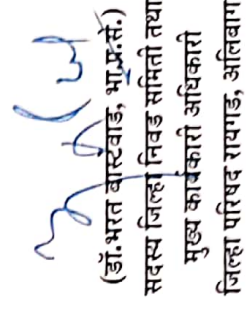 (डॉ.भरत बास्टेवाड, भा.प्र.से.)
सदस्य जिल्हा निवड समिती तथा
मुख्य कार्यकारी अधिकारी
जिल्हा परिषद रायगड, अलिबाग